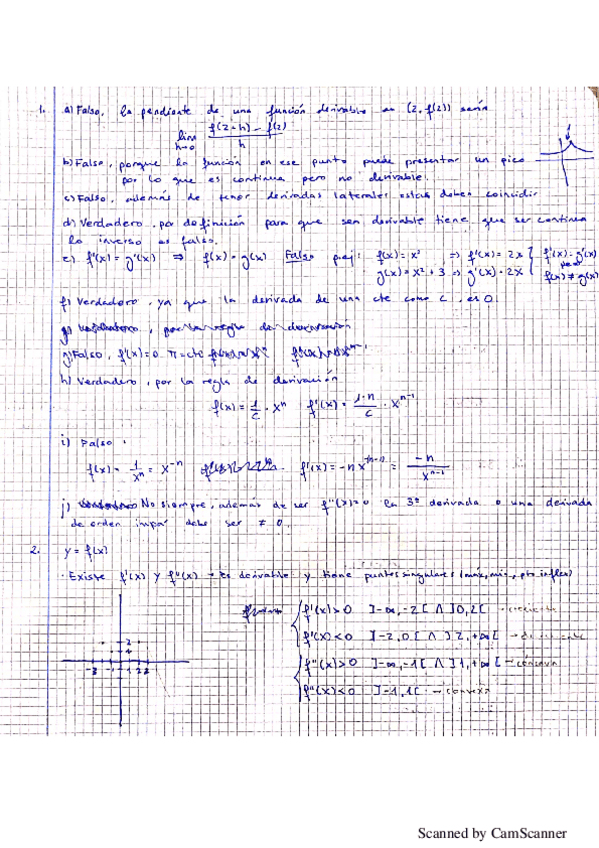 1. a) Falso, la pendiente de una función derivable en (2, f(2)) sería
lim h→0 f(2+h) - f(2) / h
b) Falso, porque la función en ese punto puede presentar un pico
por lo que es continua pero no derivable.
c) Falso, además de tener derivadas laterales estas deben coincidir
d) Verdadero, por definición para que sea derivable tiene que ser continua
lo inverso es falso.
e) f'(x) = g'(x) ⇒ f(x) = g(x) Falso p.ej: f(x) = x² ⇒ f'(x) = 2x { f'(x) = g'(x)
g(x) = x² + 3 ⇒ g'(x) = 2x pero f(x) ≠ g(x)
f) Verdadero, ya que la derivada de una cte como C, es 0
g) Falso, f'(x) = 0. π = cte
h) Verdadero, por la regla de derivación
f(x) = 1/c · xⁿ f'(x) = 1·n/c · xⁿ⁻¹
i) Falso.
f(x) = 1/xⁿ = x⁻ⁿ f'(x) = -n x = -n/xⁿ⁻¹
j) No siempre, además de ser f''(x) = 0 la 3ª derivada o una derivada
de orden impar debe ser ≠ 0.
2. y = f(x)
· Existe f'(x) y f''(x) → es derivable y tiene puntos singulares (máx, min, pto inflex)
f'(x) > 0 ]-∞, -2[ ∧ ]0, 2[ → creciente
f'(x) < 0 ]-2, 0[ ∧ ]2, +∞[ → decreciente
f''(x) > 0 ]-∞, -1[ ∧ ]1, +∞[ → cóncava
f''(x) < 0 ]-1, 1[ → convexa
Scanned by CamScanner